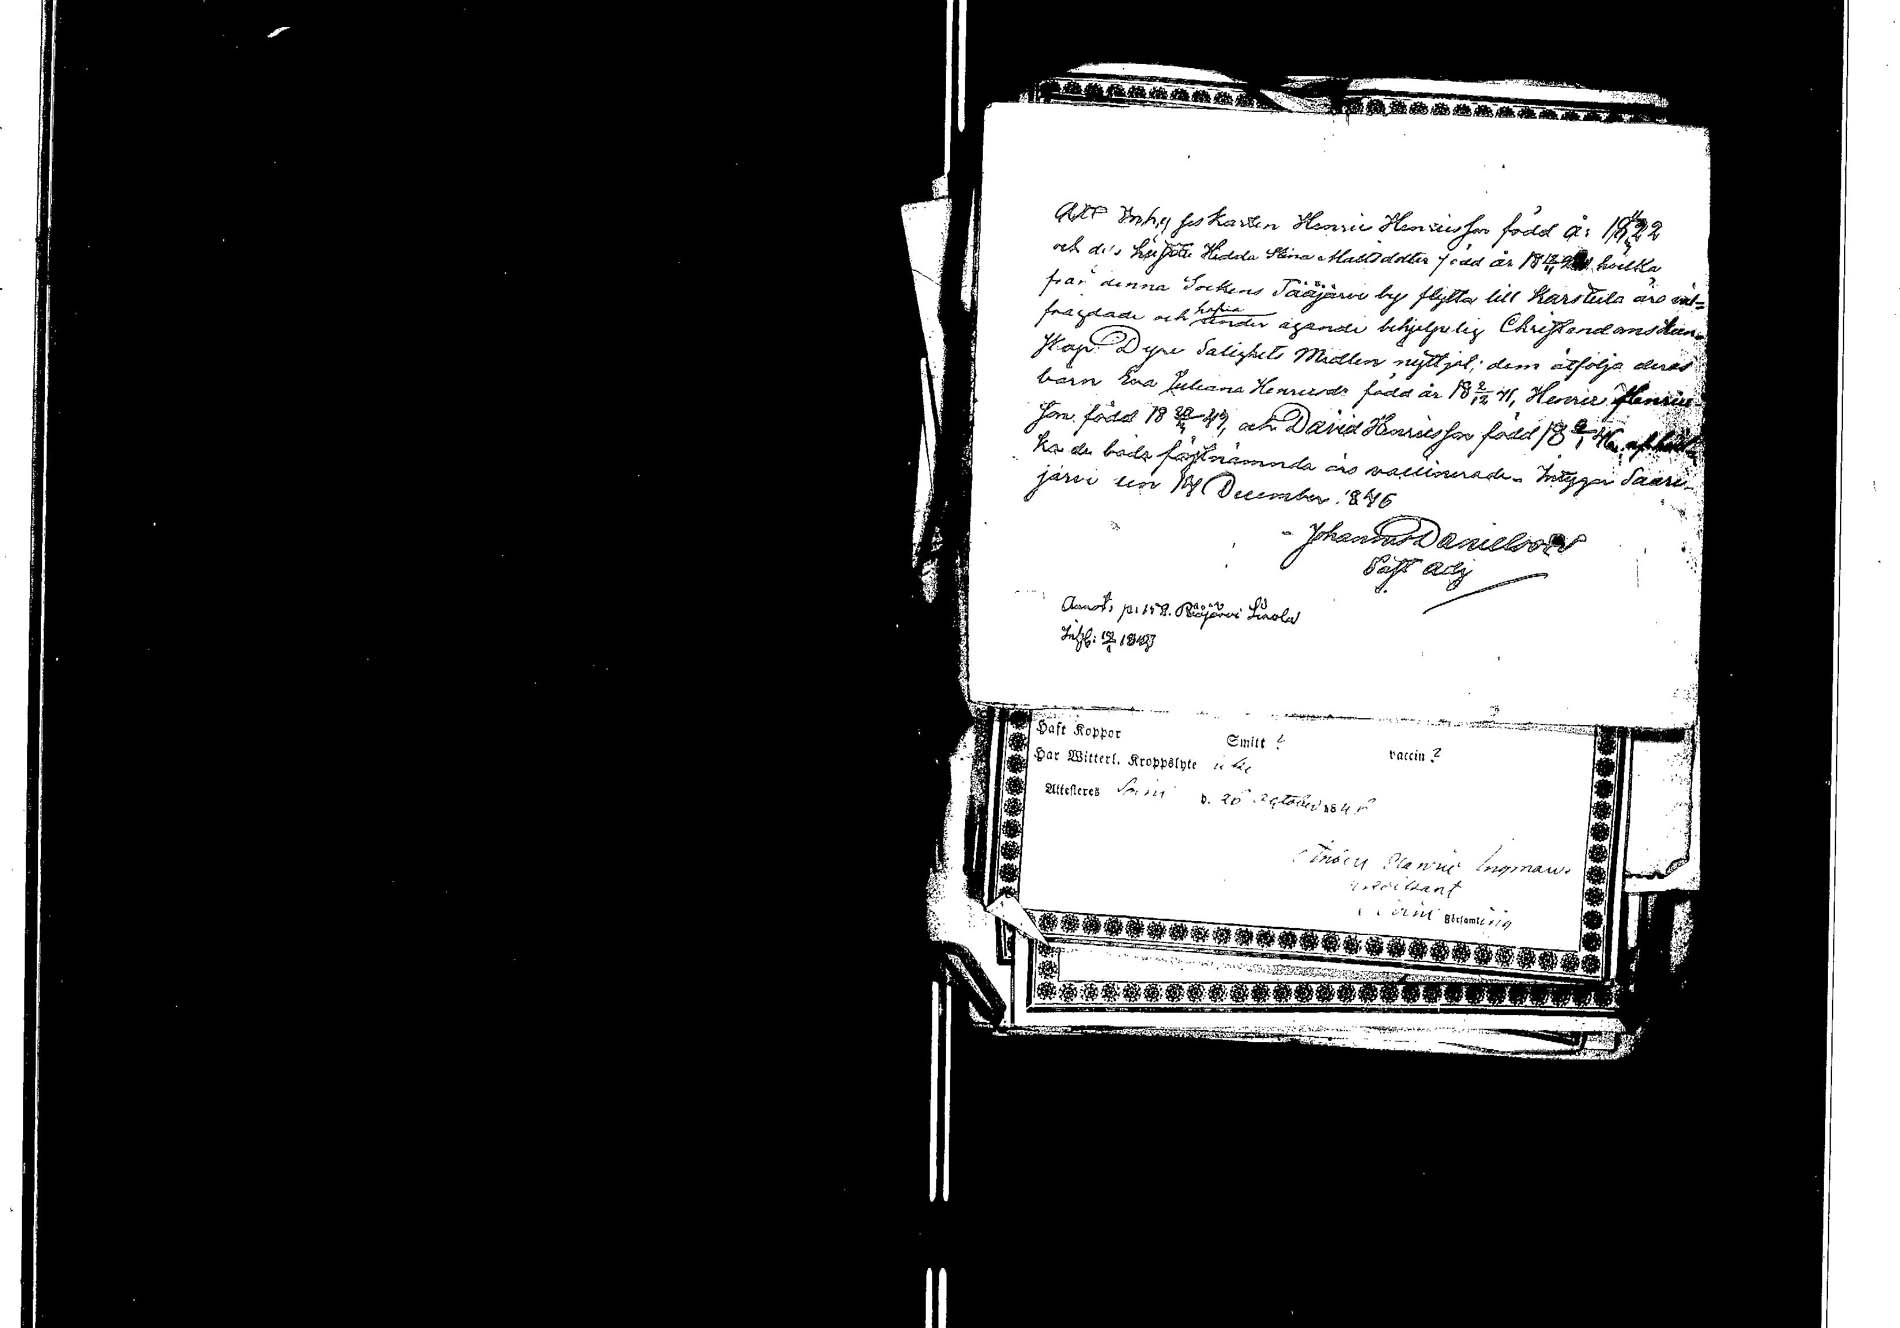 Att Inhyseskarlen Henric Henricsson född år 1822
och des hustru Hedda Stina Matsdotter född år 18 hvilka
från denna Sockens Pääjärvi by flytta till Karstula äro väl-
fragdade och hafva ägande behjelpelig Christendomskun-
skap. Dyre Salighets Medlen nyttjat; dem åtfölja deras
barn Eva Juliana Henricsdr född år 18 2/12 41, Henric Henrics-
son född 18 och David Henricsson född 18 9/1 46, af hvil-
ka de båda förstnämnda äro vaccinerade. Intygar Saari-
järvi den 14 December 1846
Johannes Danielsson
Past Adj
Annot. p. 158. Pääjärvi
1847
Haft Koppor Smitt ? vaccin ?
Har Witterl. Kroppslyte icke
Attesteras Soini d. 26 October 1846
Henric Ingman.
Soini Församling